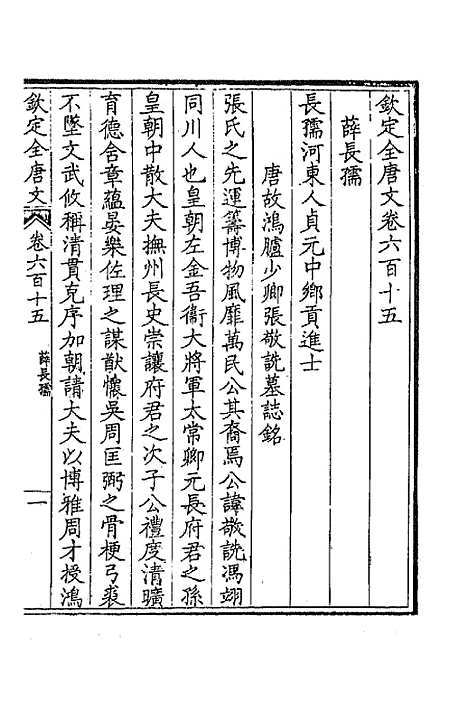 欽定全唐文卷六百十五
薛長孺
長孺河東人貞元中鄉貢進士
唐故鴻臚少卿張敬詵墓誌銘
張氏之先運籌博物風靡萬民公其裔焉公諱敬詵馮翊
同川人也皇朝左金吾衞大將軍太常卿元長府君之孫
皇朝中散大夫撫州長史崇讓府君之次子公禮度清曠
育德含章蘊晏樂佐理之謀猷懷吳周匡弼之骨梗弓裘
不墜文武攸稱清貫克序加朝請大夫以博雅周才授鴻
欽定全唐文 卷六百十五 薛長孺 一